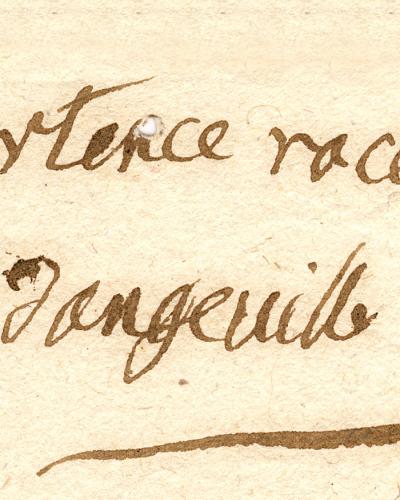 rtence race
Dangeuille